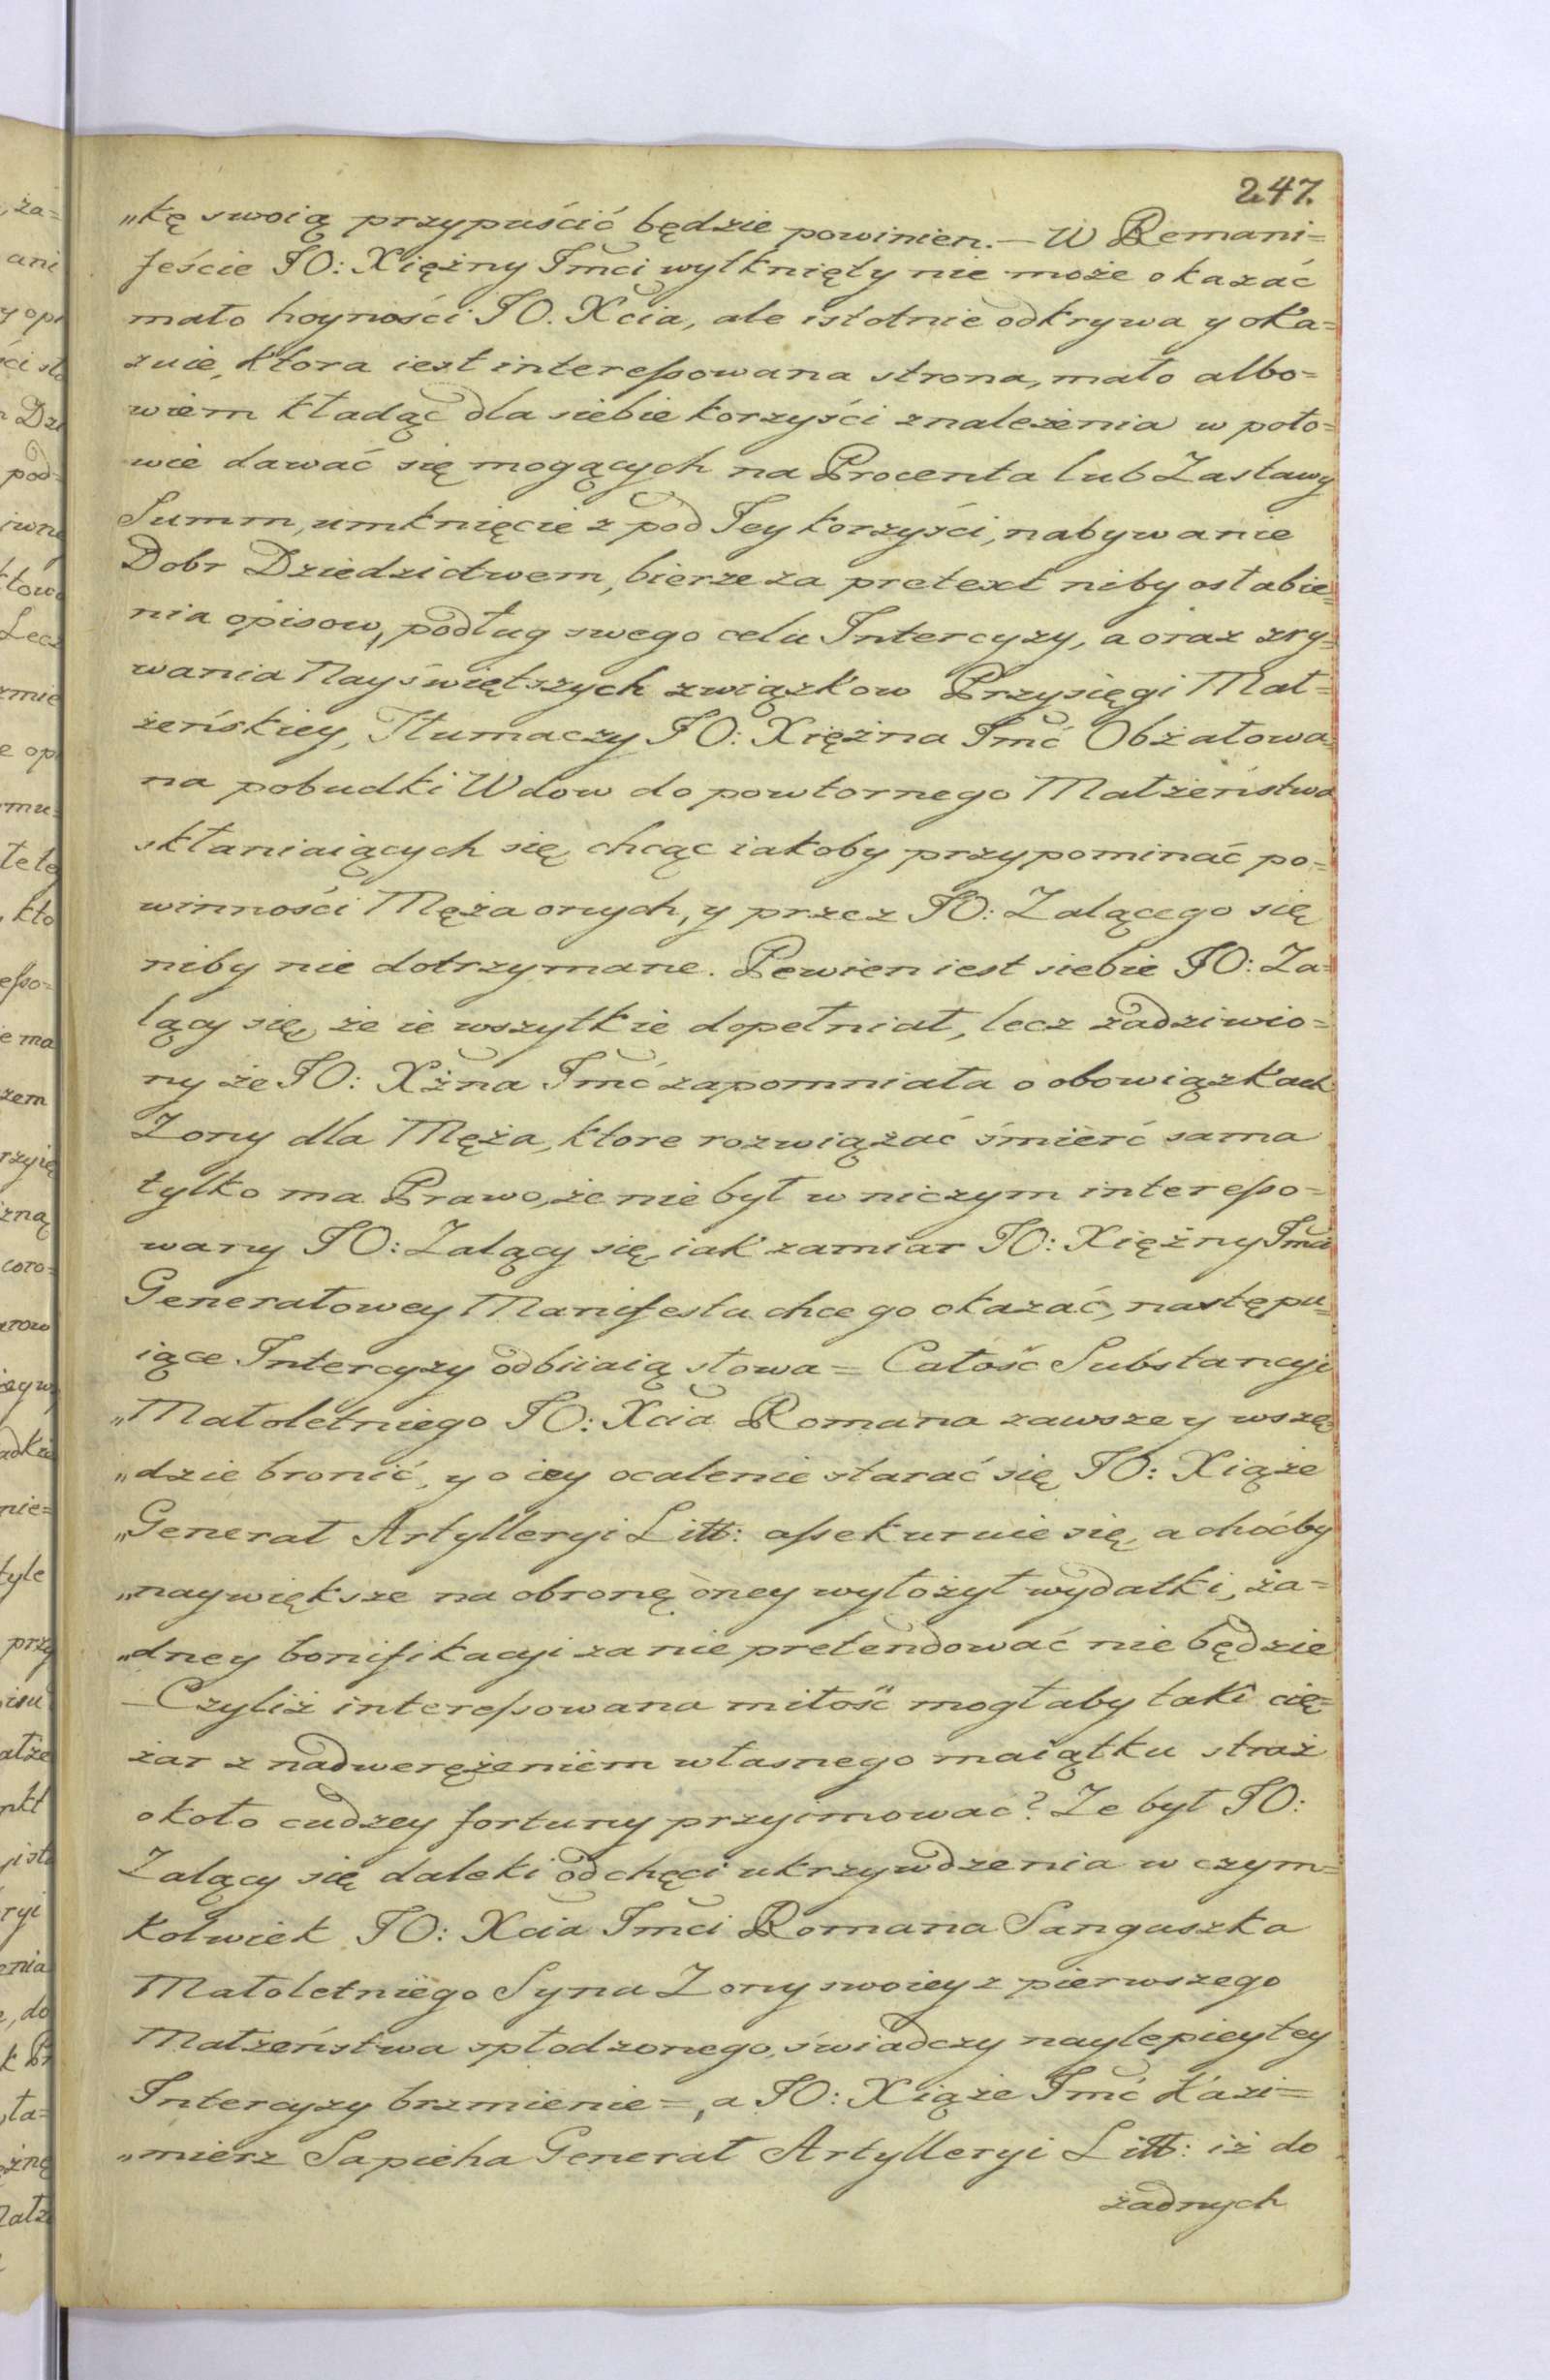 247.
„kę swoią przypuścić będzie powinien. — W Remani=
feście JO: Xiężny Jmci wytknięty nie może okazać
mało hoyności JO. Xcia, ale istotnie odkrywa y oka=
zuie, ktora iest interessowana strona, mało albo=
wiem kładąc dla siebie korzyści znależenia w poło=
wie dawać się mogących na Procenta lub Zastawy
Summ, umknięcie z pod Tey korzyści, nabywanie
Dobr Dziedzictwem, bierze za pretext niby osłabie=
nia opisow, podług swego celu Intercyzy, a oraz zry=
wania Nayświętszych związkow Przysięgi Mał=
żeńskiey, Tłumaczy JO: Xiężna Jmć Obżałowa=
na pobudki Wdow do powtornego Małżeństwa
skłaniaiących się, chcąc iakoby przypominać po=
winności Męża onych, y przez JO: Żalącego się
niby nie dotrzymane. Pewien iest siebie JO: Ża=
lący się, że ie wszytkie dopełniał, lecz zadziwio=
ny że JO: Xżna Jmć zapomniała o obowiązkach
Żony dla Męża, ktore rozwiązać śmierć sama
tylko ma Prawo, że nie był w niczym interesso=
wany JO: Żalący się, iak zamiar JO: Xiężny Jmci
Generałowey Manifestu chce go okazać, następu=
iące Intercyzy odbiiaią słowa = Całość Substancyi
„Małoletniego JO: Xcia Romana zawsze y wszę=
„dzie bronić, y o iey ocalenie starać się JO: Xiąże
„Generał Artylleryi Litt: assekuruie się, a choćby
„naywiększe na obronę oney wyłożył wydatki, ża=
„dney bonifikacyi za nie pretendować nie będzie
— Czyliż interessowana miłość mogłaby taki cię=
żar z nadwerężeniem własnego maiątku straż
około cudzey fortuny przyimować? Że był JO:
Żalący się daleki od chęci ukrzywdzenia w czym=
kolwiek JO: Xcia Jmci Romana Sanguszka
Małoletniego Syna Żony swoiey z pierwszego
Małżeństwa spłodzonego, świadczy naylepiey tey
Intercyzy brzmienie =, a JO: Xiąże Jmć Kazi=
„mierz Sapieha Generał Artylleryi Litt: iż do
żadnych